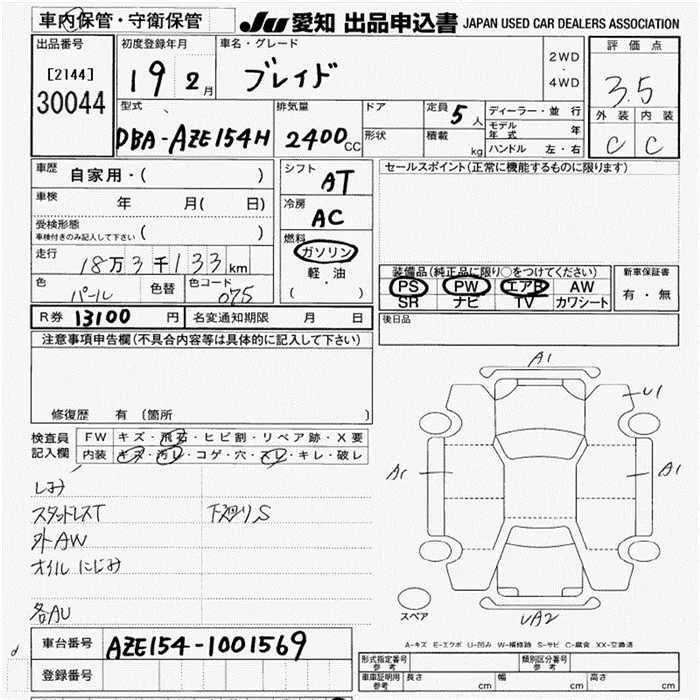 車内保管・守衛保管
JU 愛知 出品申込書 JAPAN USED CAR DEALERS ASSOCIATION
出品番号
[2144]
30044
初度登録年月
19 2月
車名・グレード
ブレイド
2WD
・
4WD
評価点
3.5
外装 内装
C C
型式
DBA-AZE154H
排気量
2400cc
ドア
形状
定員 5人
積載 kg
ディーラー・並行
モデル年式 年
ハンドル 左・右
車歴 自家用・( )
車検 年 月( 日)
受検形態
車検付きのみ記入して下さい ( )
走行 18万3千133km
色 パール 色替 色コード 075
シフト
AT
冷房
AC
燃料
ガソリン
軽油
・
( )
セールスポイント(正常に機能するものに限ります)
装備品(純正品に限り○をつけてください)
PS PW エアB AW
SR ナビ TV カワシート
新車保証書
有・無
R券 13100円 名変通知期限 月 日
後日品
注意事項申告欄(不具合内容等は具体的に記入して下さい)
修復歴 有 〔箇所 〕
検査員記入欄
FW キズ・飛石・ヒビ割・リペア跡・X要
内装 キズ・汚レ・コゲ・穴・スレ・キレ・破レ
しみ
スタッドレスT 下廻りS
外AW
オイルにじみ
各AU
A1
U1
A1
A1
UA2
スペア
A-キズ E-エクボ U-凹み W-補修跡 S-サビ C-腐食 XX-交換済
車台番号 AZE154-1001569
登録番号
形式指定番号 参考
類別区分番号 参考
車庫証明用 参考 長さ cm 幅 cm 高さ cm